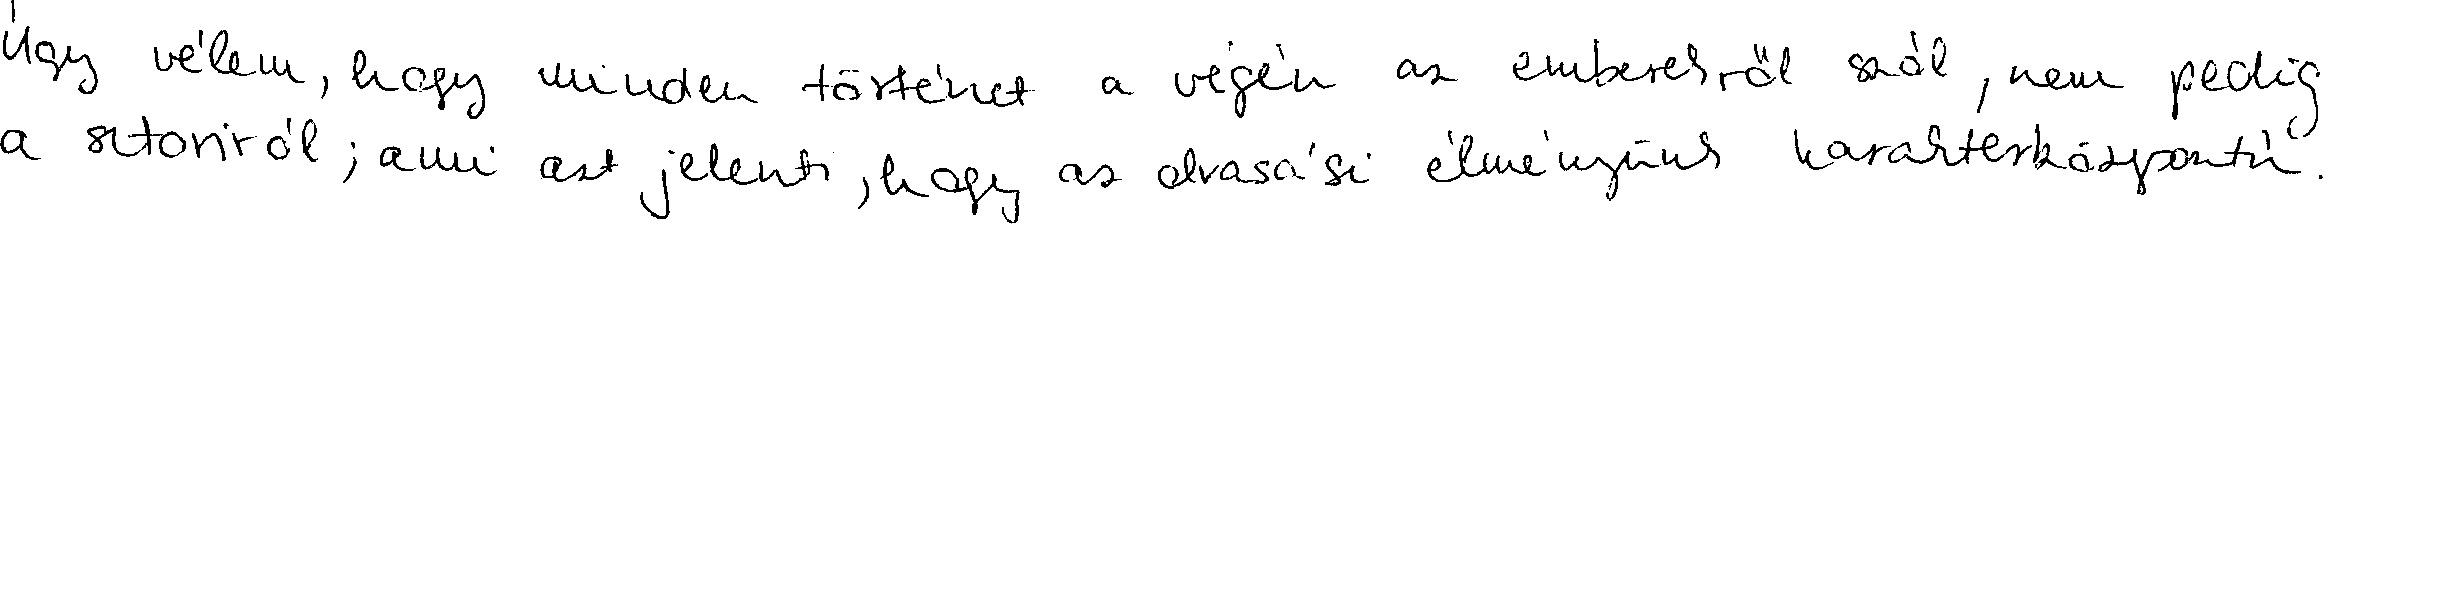 Úgy vélem, hogy minden történet a végén az emberekről szól, nem pedig
a sztoriról; ami azt jelenti, hogy az olvasási élményünk karakterközpontú.